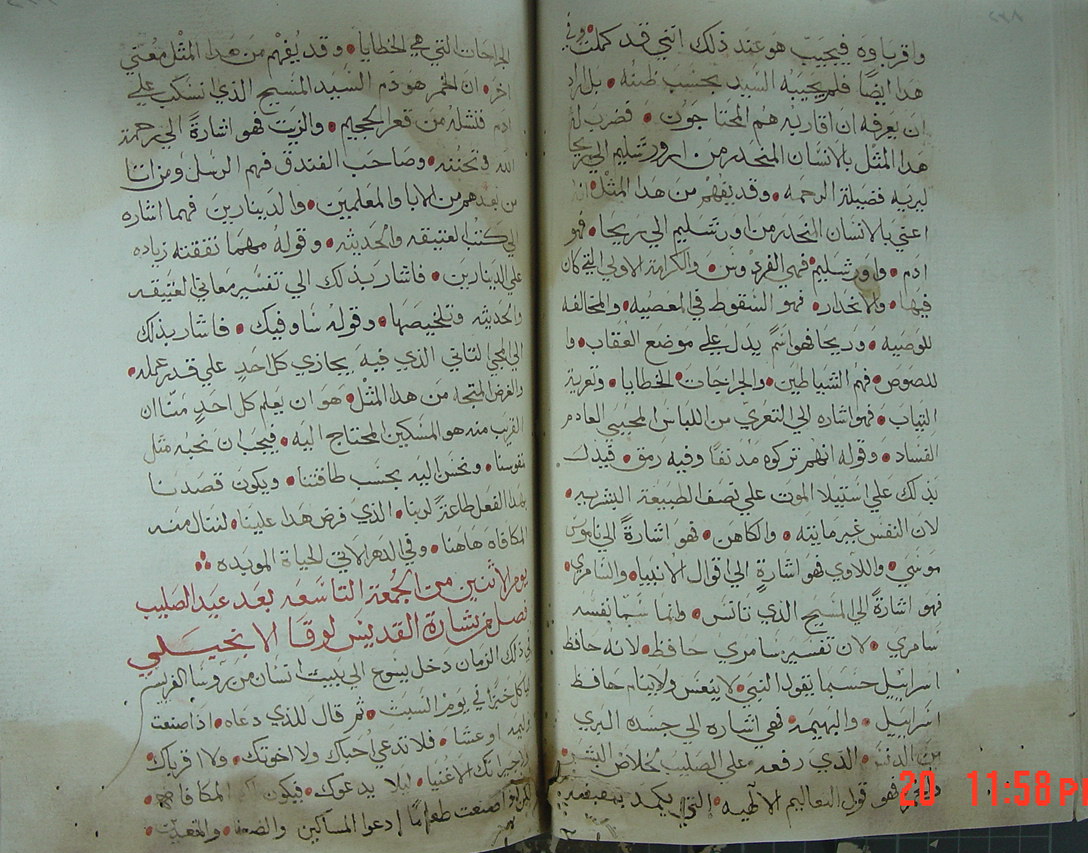 ٢٦٨
واقرباوه فيجيب هو عند ذلك انني قد كملت وفي
هذا ايضا فلم يجيبه السيد بحسب ظنه • بل اراد
ان يعرفه ان اقاربه هم المحتاجون • فضرب له
هذا المثل بالانسان المنحدر من اورشليم الي ريحا
ليريه فضيلة الرحمه • وقد يفهم من هذا المثل • انه
اعني بالانسان المنحدر من اورشليم الي ريحا • فهو
ادم • واورشليم • فهي الفردوس • والكرامة الاولي التي كان
فيها • والانحدار • فهو السقوط في المعصيه • والمخالفه
للوصيه • وريحا فهو اسم يدل علي موضع العقاب • وا
للصوص • فهم الشياطين • والجراحات • الخطايا • وتعرية
الثياب • فهو اشاره الي التعري من اللباس العادم
الفساد • وقوله انهم تركوه مدنفا وفيه رمق • فيدل
بذلك علي استيلا الموت علي نصف الطبيعة البشريه •
لان النفس غير مايته • والكاهن • فهو اشارة الي ناموس
موسي • واللاوي فهو اشارة الي اقوال الانبيا • والسامري •
فهو اشارة الي المسيح الذي تانس • وانما سما نفسه
سامري • لان تفسير سامري حافظ • لانه حافظ
اسراييل حسبما يقول النبي • لا ينعس ولا ينام حافظ
اسراييل • والبهيمه • فهي اشاره الي جسده البري
من الدنس • الذي رفعه علي الصليب لخلاص البشر
فهو قول التعاليم الالهيه • التي
الجراحات التي هي الخطايا • وقد يفهم من هذا المثل معني
اخر • ان الخمر هو دم السيد المسيح الذي انسكب علي
ادم فنشله من قعر الجحيم • والزيت فهو اشارة الي رحمة
الله وتحننه • وصاحب الفندق فهم الرسل ومن اتا
من بعدهم من الابا والمعلمين • والدينارين فهما اشاره
الي كتب العتيقه والحديثه • وقوله مهما نفقته زياده
علي الدينارين • فاشار بذلك الي تفسير معاني العتيقه
والحديثه وتلخيصها • وقوله ساوفيك • فاشار بذلك
الي المجي الثاني الذي فيه يجازي كل احد علي قدر عمله •
والغرض المتجه من هذا المثل • هو ان يعلم كل احد منا ان
القريب منه هو المسكين المحتاج اليه • فيجب ان نحبه مثل
نفوسنا • ونحسن اليه بحسب طاقتنا • ويكون قصدنا
بهذا الفعل طاعة لربنا • الذي فرض هذا علينا • لننال منه
المكافاه هاهنا • وفي الدهر الاتي الحياة الموبده
يوم الاثنين من الجمعة التاسعه بعد عيد الصليب
فصل من بشارة القديس لوقا الانجيلي
في ذلك الزمان دخل يسوع الي بيت انسان من روسا الفريسيين
لياكل خبزا في يوم السبت • ثم قال للذي دعاه • اذا صنعت
وليمه او عشا • فلا تدعي احباك ولا اخوتك • ولا اقرباك •
ولا جيرانك الاغنيا • ليلا يدعوك • فيكون المكافاه •
لكن اذا صنعت طعاما ادعوا المساكين والضعفا •
20 11:58 PM